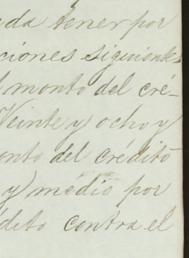 da tener por
ciones siguientes
l monto del cré-
Veinte y ocho y
onto del crédito
y medio por
édito contra el